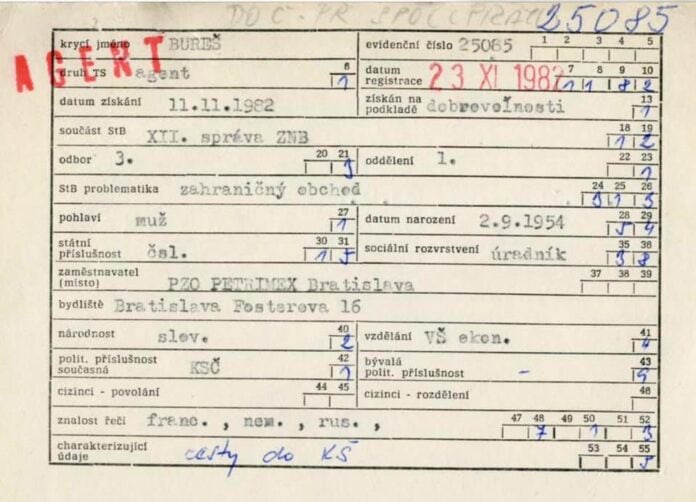 DOČ. PR SPOLUPRACI 25085
AGENT
krycí jméno BUREŠ evidenční číslo 25085 1 2 3 4 5
druh TS agent 6 1 datum registrace 23 XI. 1982 7 8 9 10 1 1 8 2
datum získání 11.11.1982 získán na podkladě dobrovoľnosti 13 1
součást StB XII. správa ZNB 18 19 1 2
odbor 3. 20 21 3 oddělení 1. 22 23 1
StB problematika zahraničný obchod 24 25 26 3 1 3
pohlaví muž 27 1 datum narození 2.9.1954 28 29 5 4
státní příslušnost čsl. 30 31 1 5 sociální rozvrstvení úradník 35 36 3 8
zaměstnavatel (místo) PZO PETRIMEX Bratislava 37 38 39
bydliště Bratislava Fosterova 16
národnost slov. 40 2 vzdělání VŠ ekon. 41 4
polit. příslušnost současná KSČ 42 1 bývalá polit. příslušnost - 43 9
cizinci - povolání 44 45 cizinci - rozdělení 46
znalost řečí franc., nem., rus., 47 48 49 50 51 52 7 1 3
charakterizující údaje cesty do KŠ 53 54 55 5